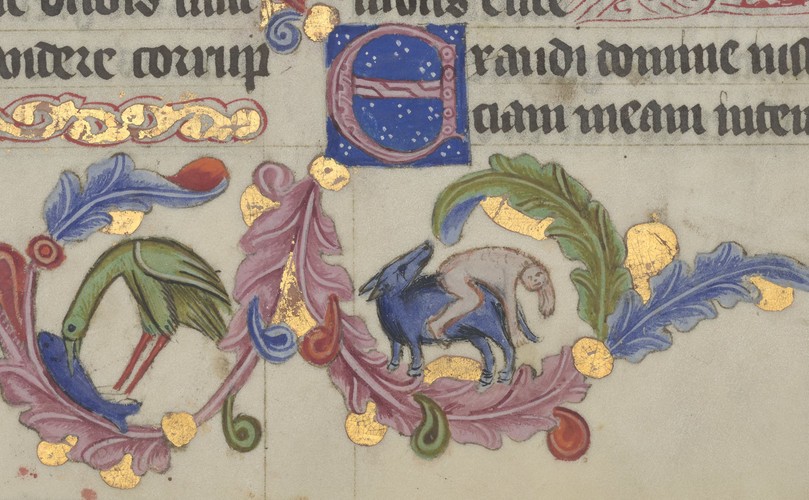 videre corrup
Exaudi domine ius
ciam meam inten